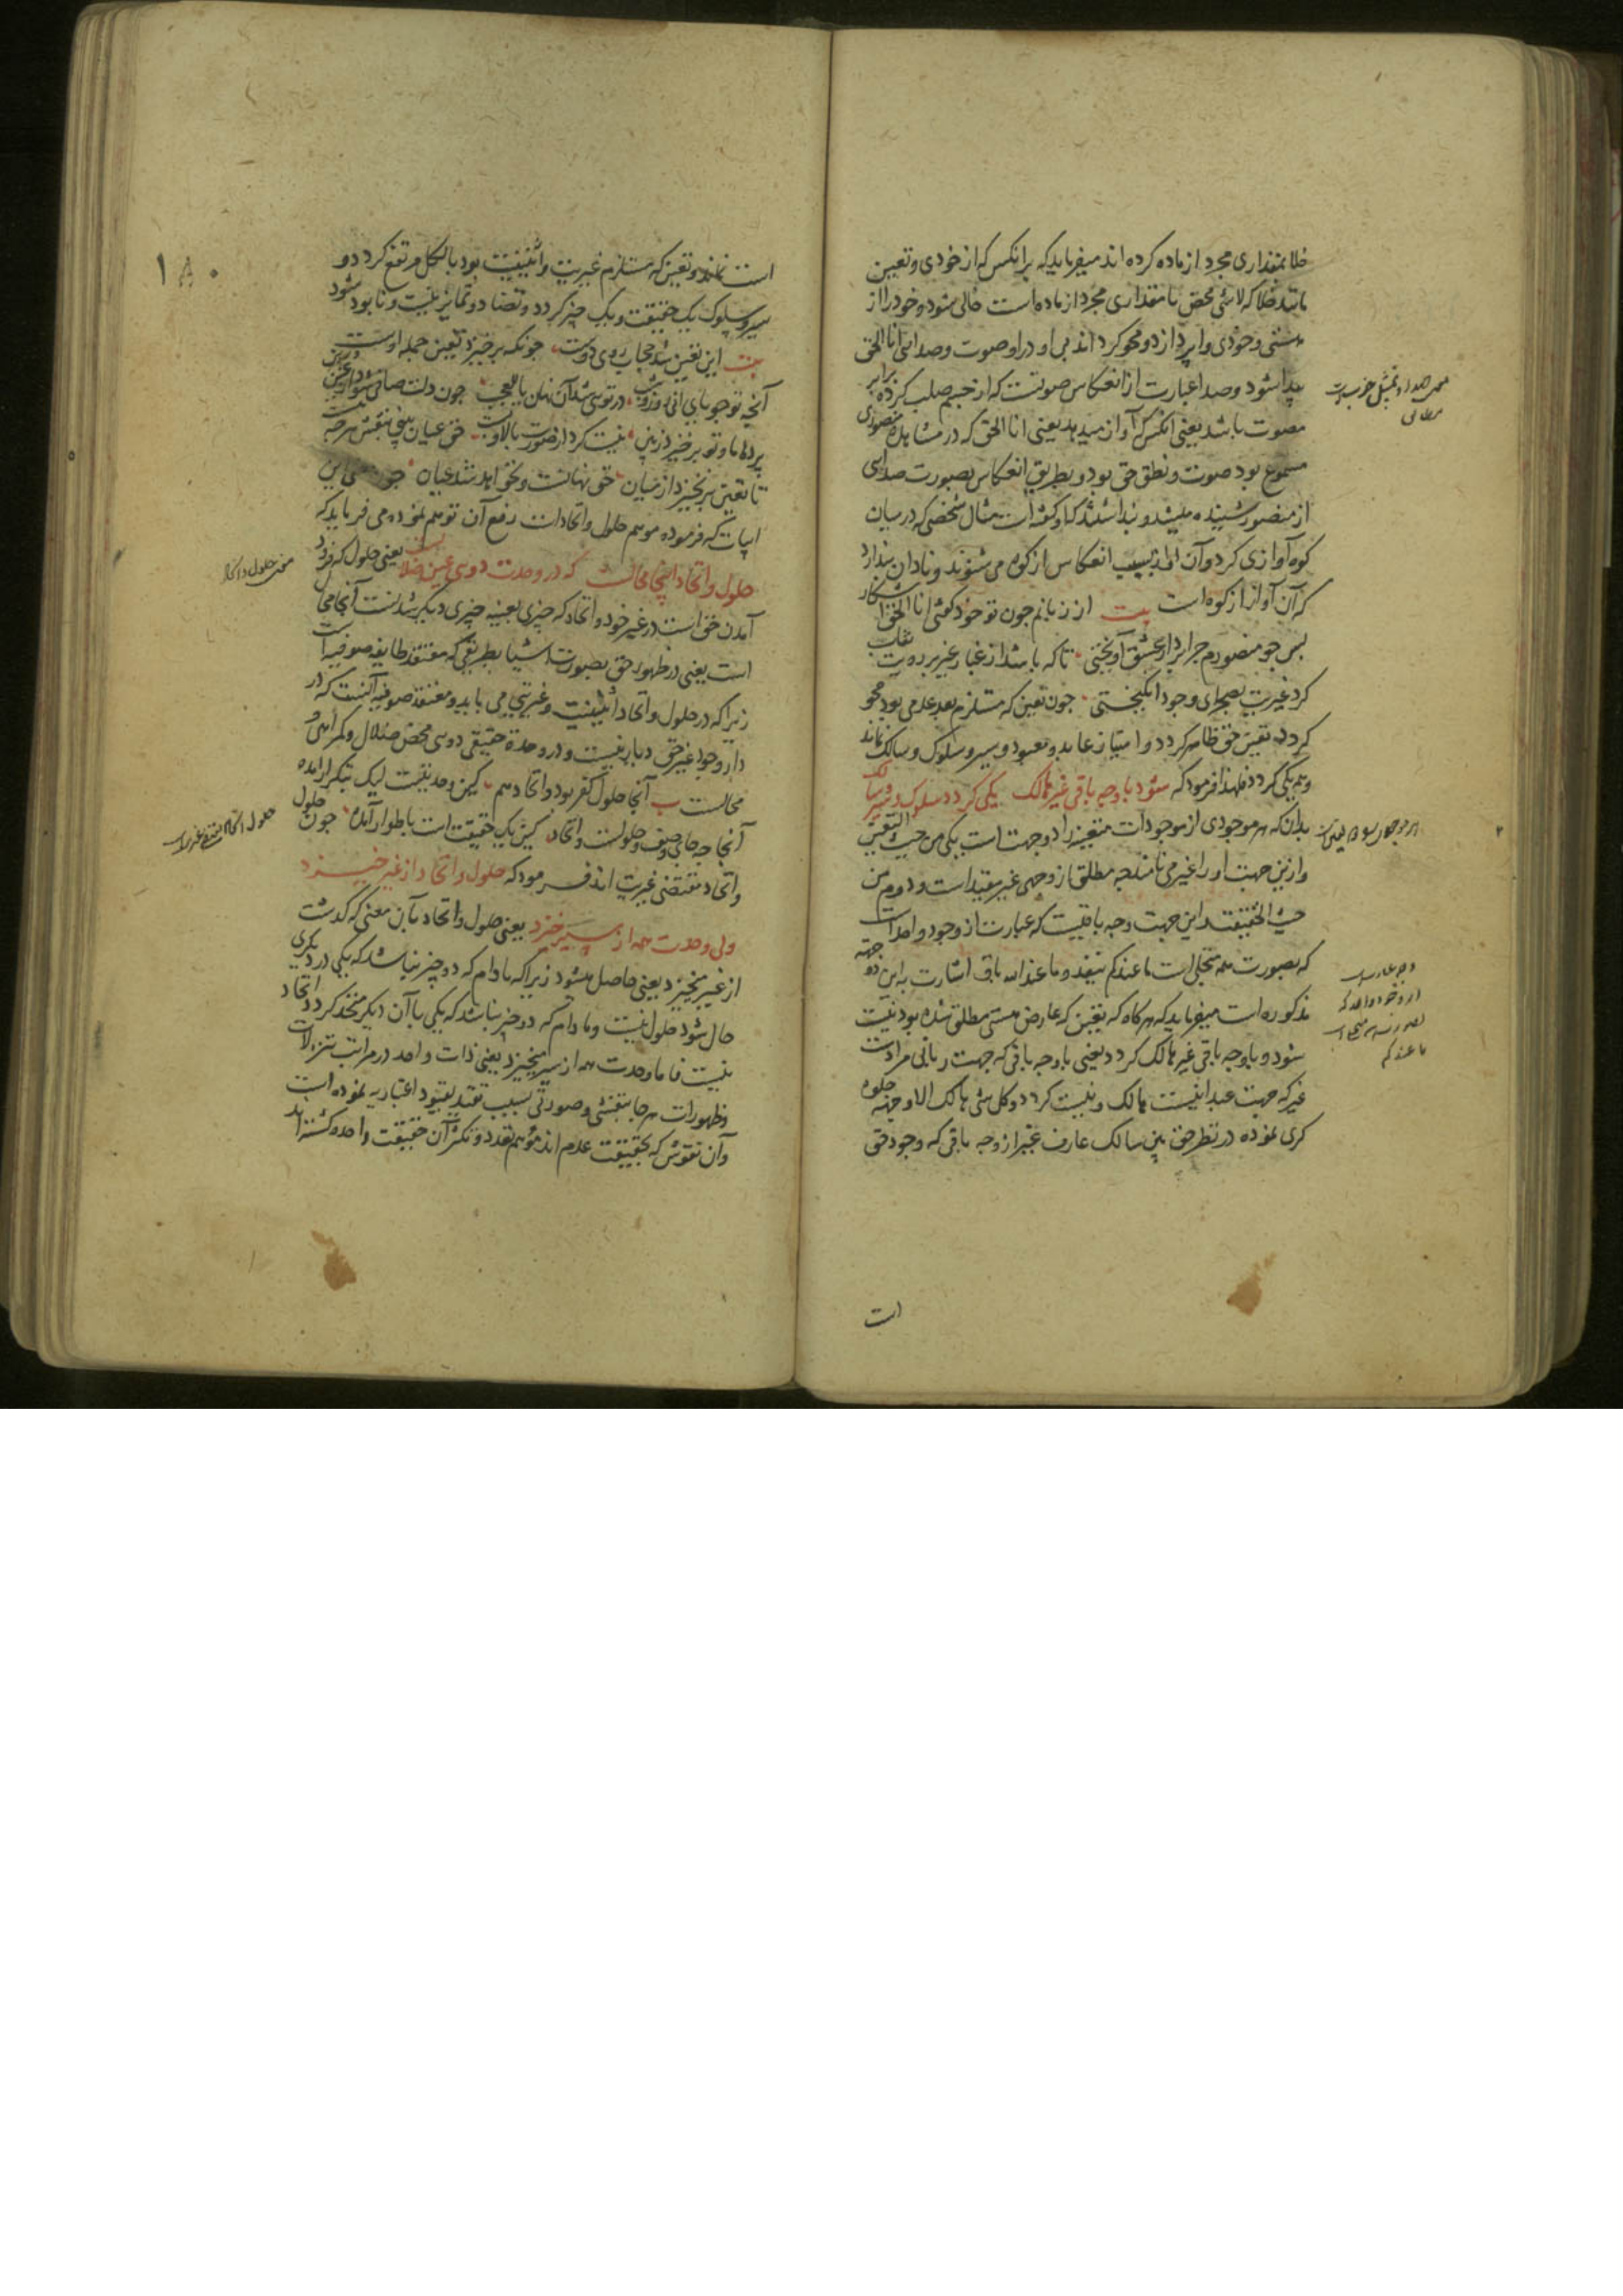 خلا بمقداری مجرد از ماده کرده اند میفرماید که هرانکس که از خودی و تعین
مانند خلا که لاشی محض یا مقداری مجرد از ماده است خالی شود و خود را از
هستی و خودی واپردازد و محو گرداند بی او در او صوت و صدای انا الحق
پیدا شود و صدا عبارت از انعکاس صوتست که از جسم صلب کرده برابر
مصوت باشد یعنی انکس که آواز میدهد یعنی انا الحق که در مشاهده منصوری
مسموع بود صوت و نطق حق بود و بطریق انعکاس بصورت صدایی
از منصور شنیده میشد و پنداشتند که او گفته است مثال شخصی که در میان
کوه آوازی کرد و آن آواز بسبب انعکاس از کوه می شنوند و نادان پندارد
که آن آواز از کوه است بیت از زبانم چون تو خود گفتی انا الحق آشکار
پس چو منصورم چرا بر دار عشق آویختی تا که باشد از غبار غیر بر رویت نقاب
گرد غیریت بصحرای وجود انگیختی چون تعین که مستلزم بعد عدمی بود محو
گردد تعین حق ظاهر گردد و امتیاز عابد و معبود و سیر و سلوک و سالک نماند
و همه یکی گردد فلهذا فرمود که شود با وجه باقی غیر هالک یکی گردد سلوک و سیر و سالک
بدان که هر موجودی از موجودات متعینه را دو جهت است یکی من حیث التعین
و ازین جهت او را غیر می نامند چه مطلق از وجهی غیر مقید است و دوم من
حیث الحقیقت و این جهت وجه باقیست که عبارت از وجود واحد است
که بصورت همه متجلی است ما عندکم ینفد و ما عند الله باق اشارت به این دو جهة
مذکوره است میفرماید که هرگاه که تعین که عارض هستی مطلق شده بود نیست
شود و با وجه باقی غیر هالک گردد یعنی با وجه باقی که جهت ربانی مراد است
غیر که جهت عبدانیست هالک و نیست گردد و کل شی هالک الا وجهه جلوه
گری نموده در نظر حق بین سالک عارف غیر از وجه باقی که وجود حق
است
هر موجودی را دو جهت است
وجه عبارت
از وجود واحد که
بصورت همه متجلی است
ما عندکم
۱۸۰
است نماند و تعین که مستلزم غیریت و اثنینیت بود بالکل مرتفع گردد و
سیر و سلوک یک حقیقت و یک چیز گردد و تضاد و تمایز نیست و نابود شود
بیت این تعین شد حجاب روی دوست چونکه برخیزد تعین جمله اوست
آنچه تو جویای آنی روز و شب در تویی شد آن نهان یا للعجب چون دلت صافی شود از غیرین
پرده ما و تو برخیزد ز بین نیست گردد از صورت بالا و پست حق عیان بینی بنقش هر چه هست
تا تعین برنخیزد از میان حق نهانست و نخواهد شد عیان چون این
ابیات که فرموده موهم حلول و اتحاد است رفع آن توهم نموده می فرماید که
حلول و اتحاد اینجا محالست که در وحدت دوی عین ضلالست یعنی حلول که فرود
آمدن حق است در غیر خود و اتحاد که چیزی بعینه چیزی دیگر شدنست آنجا محال
است یعنی در ظهور حق بصورت اشیا بطریقی که معتقد طایفه صوفیه است
زیرا که در حلول و اتحاد اثنینیت و غیریتی می باید و معتقد صوفیه آنست که در
دار وجود غیر حق دیار نیست و در وحدة حقیقی دویی محض ضلال و گمراهی و
محالست ب آنجا حلول کفر بود و اتحاد هم کین وحدتیست لیک بتکرار آمده
آنجا چه جای وصف حلولست و اتحاد کین یک حقیقت است باطوار آمده چون حلول
و اتحاد مقتضی غیریت اند فرمود که حلول و اتحاد از غیر خیزد
ولی وحدت همه از سیر خیزد یعنی حلول و اتحاد بآن معنی که گذشت
از غیر میخیزد یعنی حاصل میشود زیرا که مادام که دو چیز نباشد که یکی در دیگری
حال شود حلول نیست و مادام که دو چیز نباشد که یکی با آن دیگر متحد گردد اتحاد
نیست فاما وحدت همه از سیر میخیزد یعنی ذات واحد در مراتب تنزلات
و ظهورات هر جا بنقشی و صورتی بسبب تقید بقیود اعتباریه نموده است
و آن نقوش که بحقیقت عدم اند موهم تعدد و تکثر آن حقیقت واحده گشته اند
معنی حلول و اتحاد